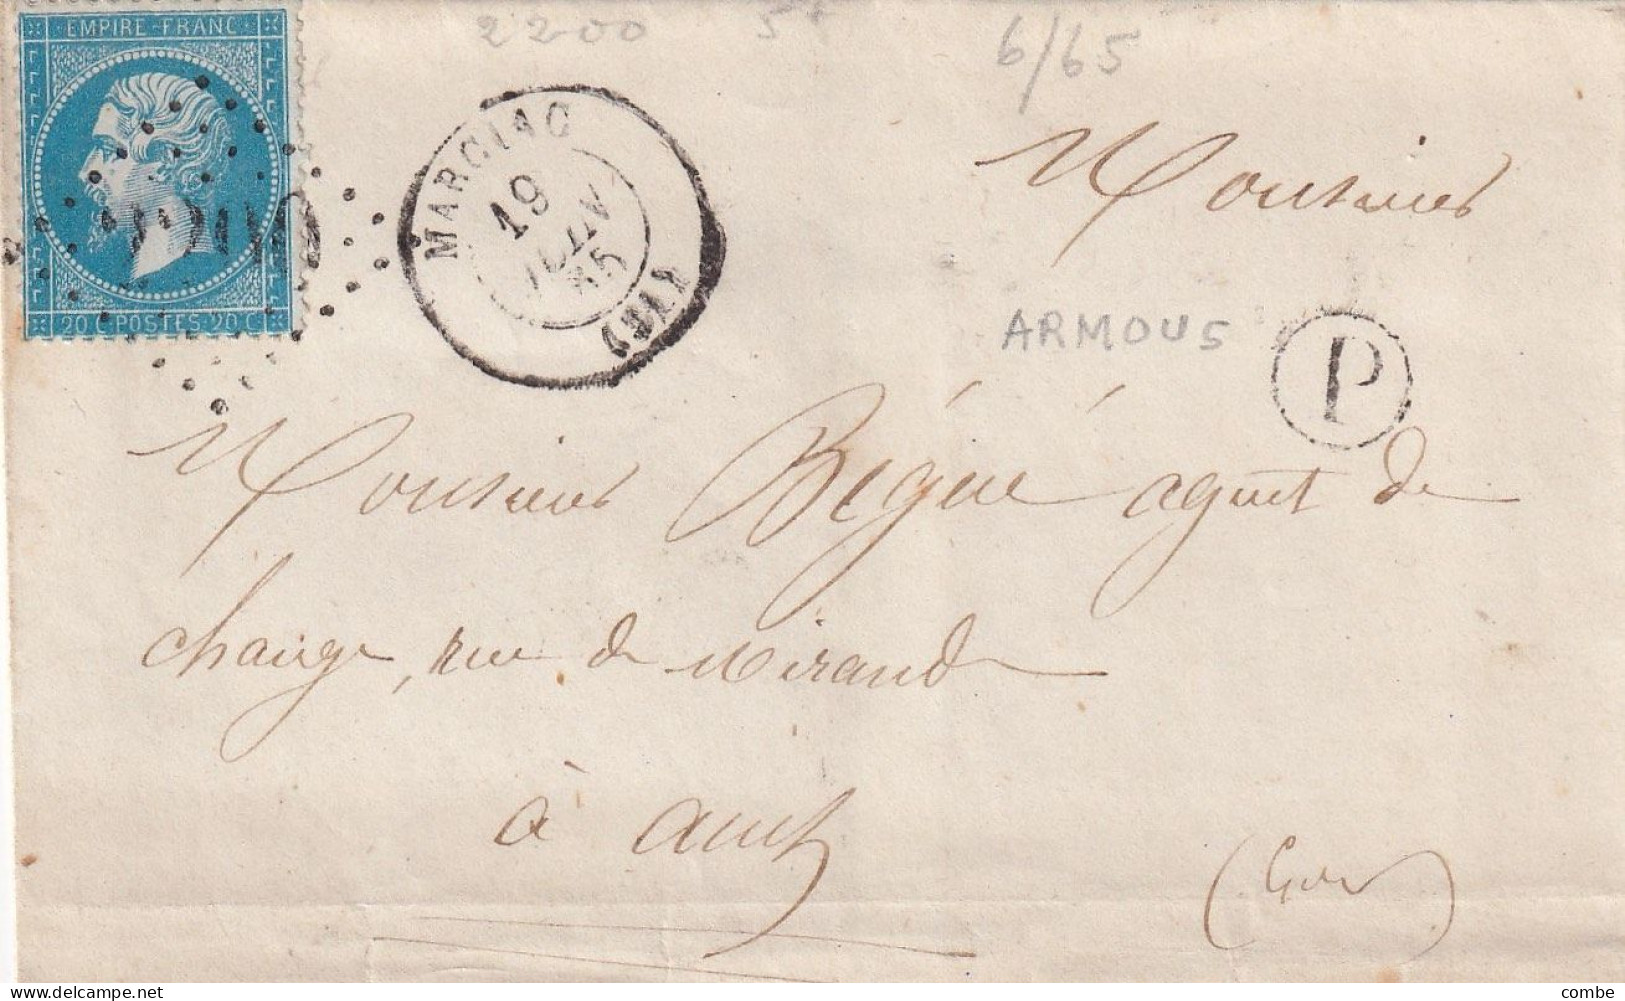 2200
6/65
EMPIRE FRANC
2200
20 C POSTES 20 C
MARCIAC
19
JUIN
65
(31)
Monsieur
ARMOUS
P
Monsieur Bégué agent de
change, rue de Mirande
à Auch
(Gers)
© delcampe.net
combe